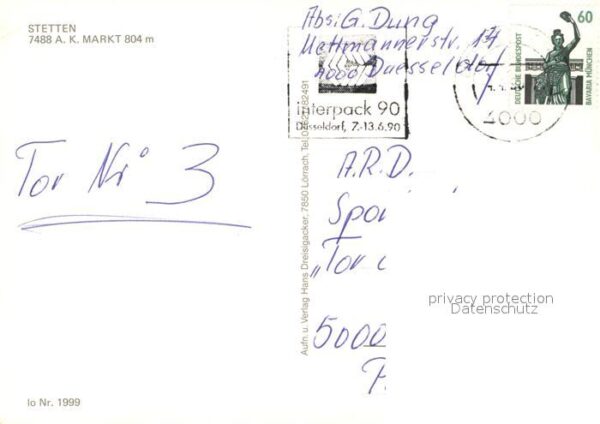 STETTEN
7488 A. K. MARKT 804 m
Abs: G. Dung
Mettmannerstr. 17
4000 Duesseldorf
60
DEUTSCHE BUNDESPOST
BAVARIA MÜNCHEN
interpack 90
Düsseldorf, 7.-13.6.90
4000
Tor Nr 3
A.R.D.
Spor
"Tor
5000
privacy protection
Datenschutz
Aufn. u. Verlag Hans Dreisigacker, 7850 Lörrach, Tel.
Io Nr. 1999